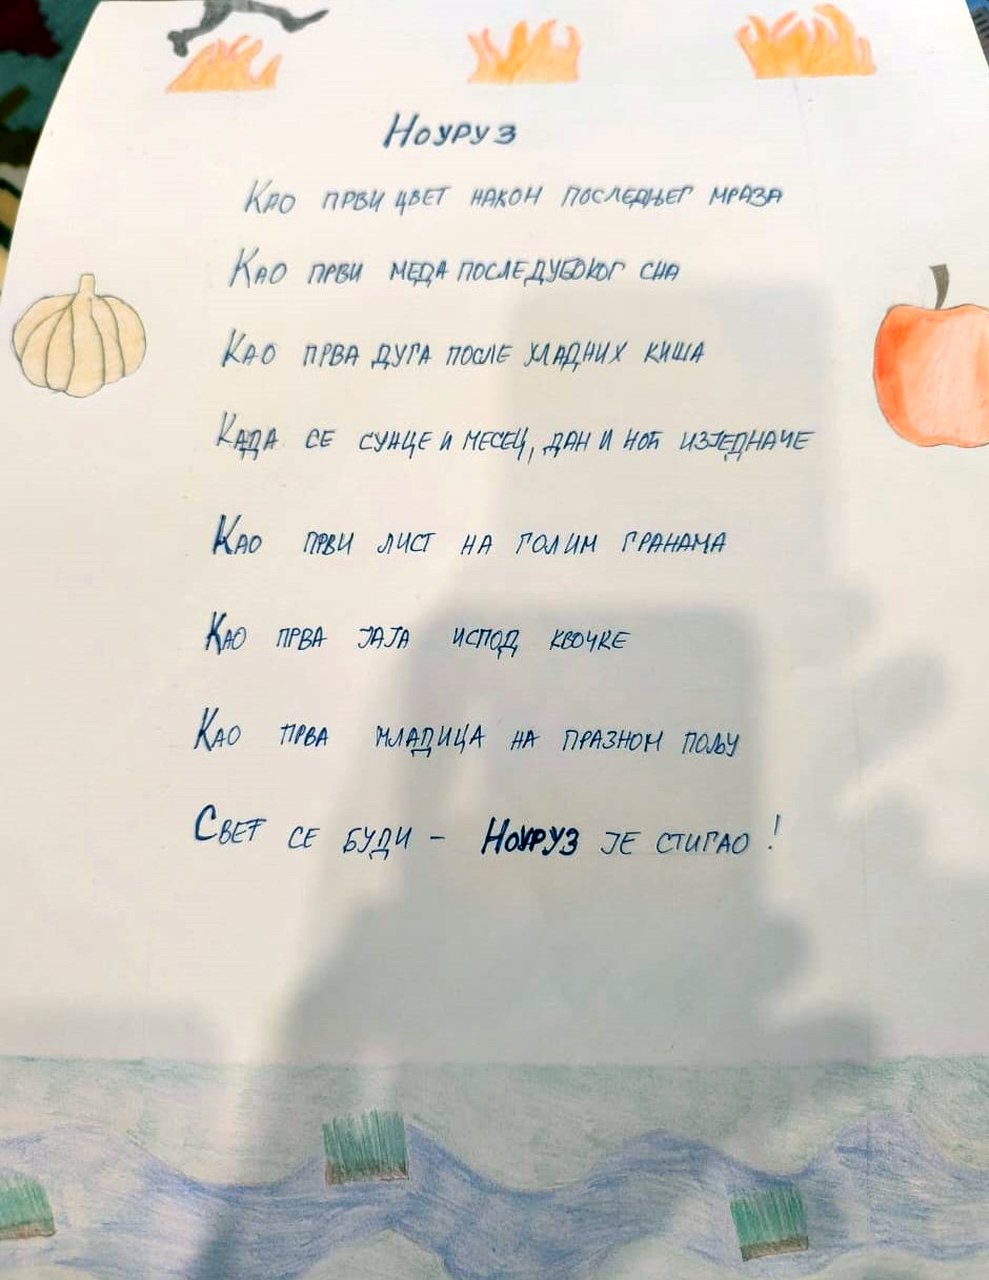 Ноуруз
Као први цвет након последњег мраза
Као први меда после дубоког сна
Као прва дуга после хладних киша
Када се сунце и месец, дан и ноћ изједначе
Као први лист на голим гранама
Као прва јаја испод квочке
Као прва младица на празном пољу
Свет се буди - Ноуруз је стигао!